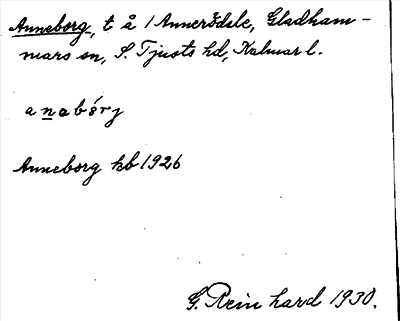 Anneborg, t å / Annersdale, Gladham-
mars sn, S. Tjusts hd, Kalmar l.
anabórj
Anneborg kb 1926
G. Rein hard 1930.